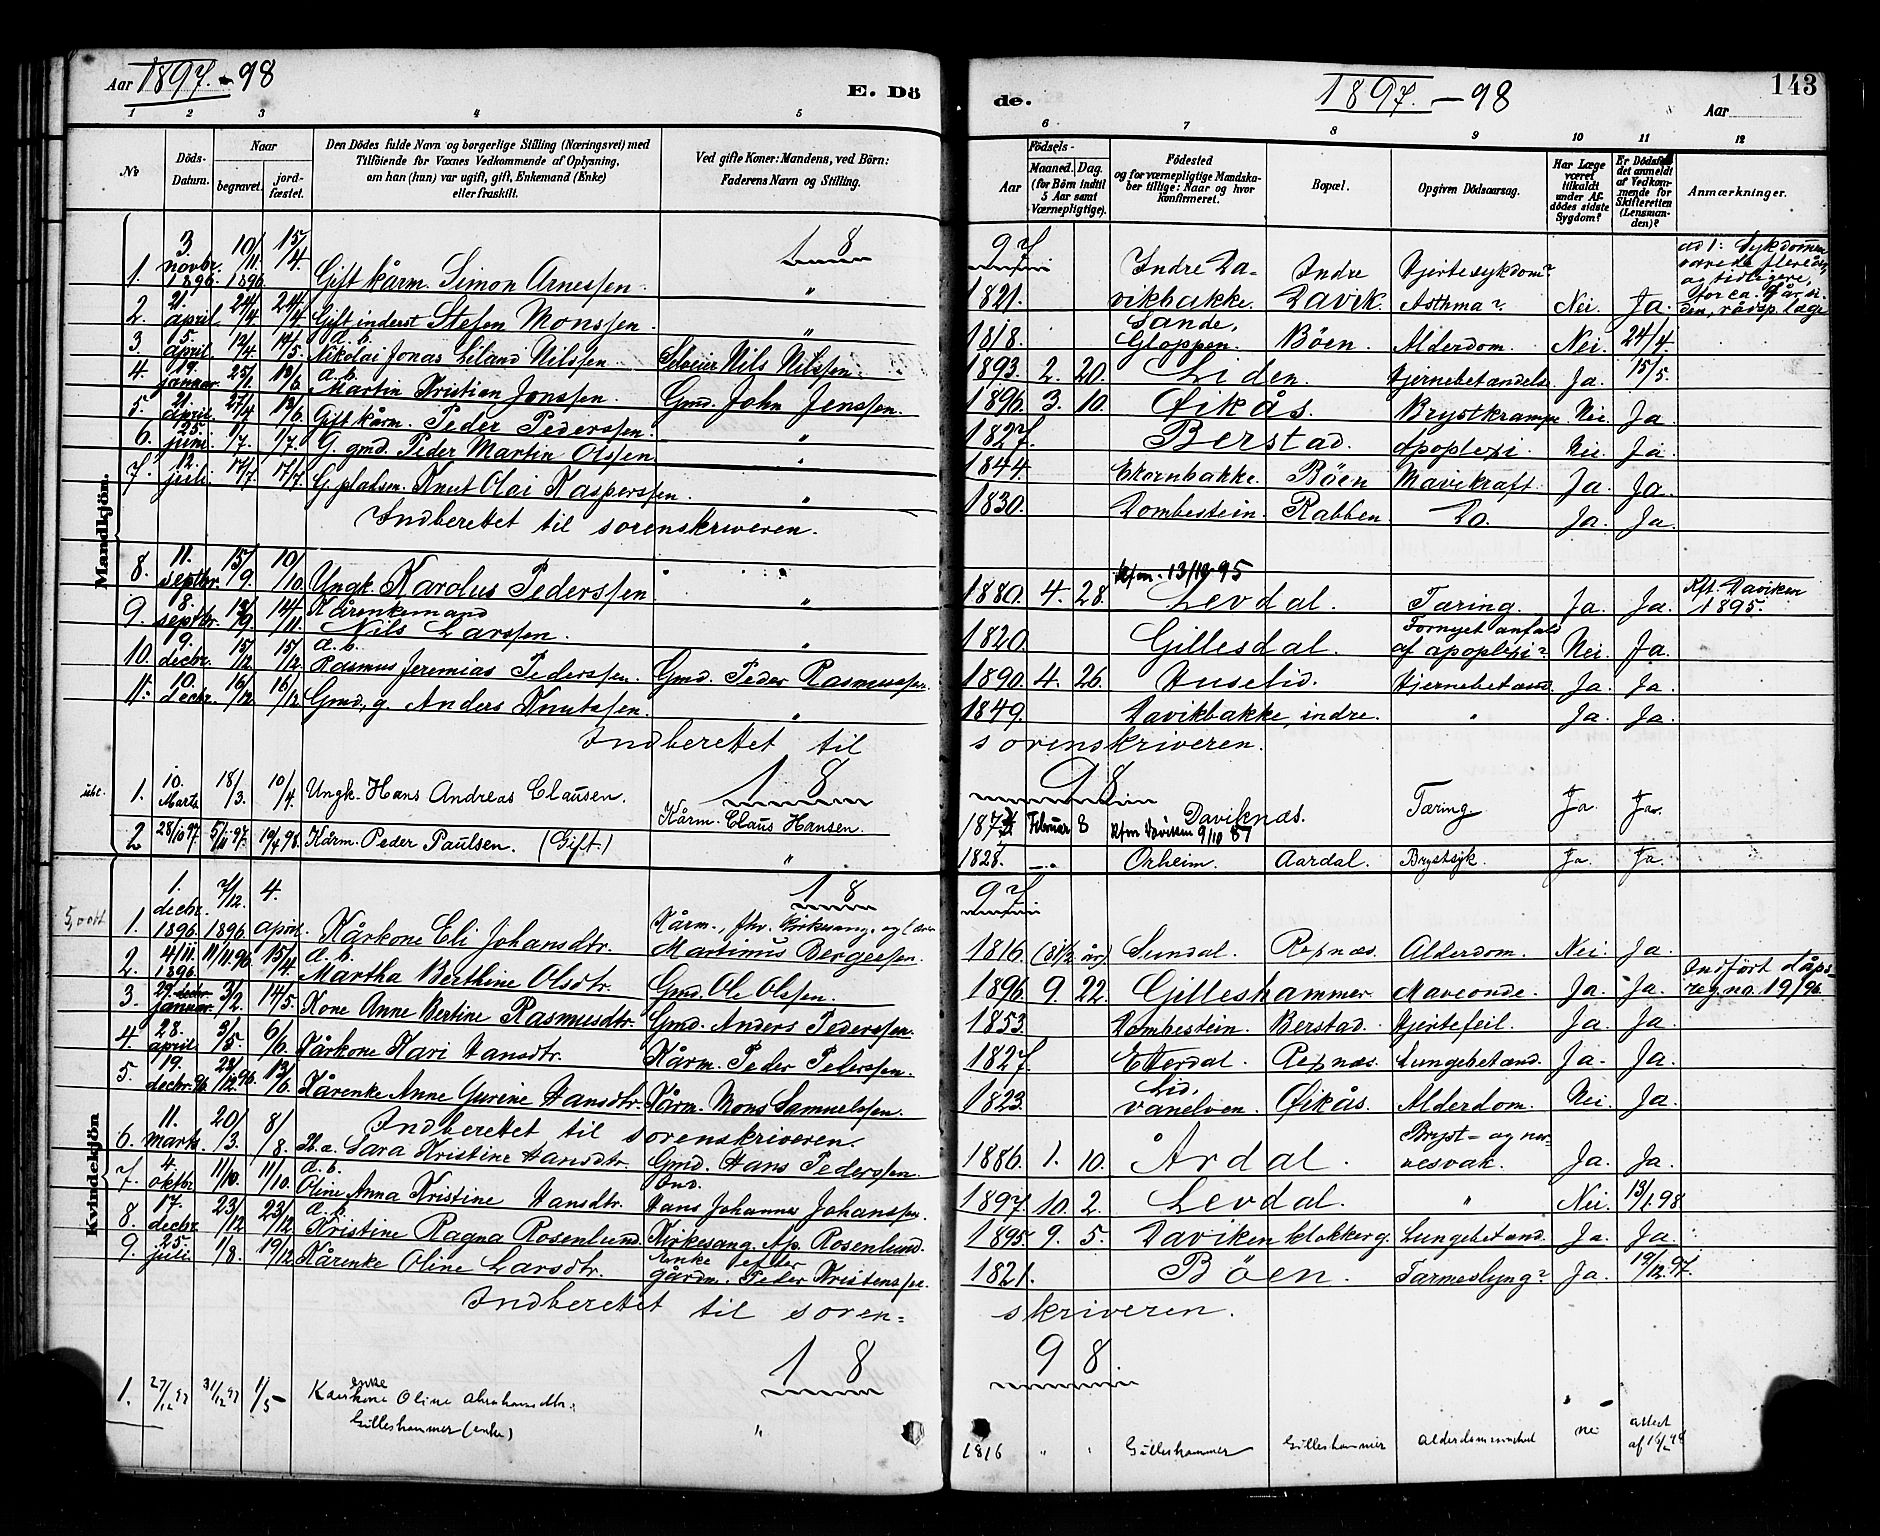 Aar 1897.-98
E. Dö
de.
1897. - 98
Aar
143
1 2 3 4 5 6 7 8 9 10 11 12
No
Döds-Datum.
Naar
begravet.
jord-fæstet.
Den Dödes fulde Navn og borgerlige Stilling (Næringsvei) med
Tilföiende for Voxnes Vedkommende af Oplysning,
om han (hun) var ugift, gift, Enkemand (Enke)
eller fraskilt.
Ved gifte Koner: Mandens, ved Börn:
Faderens Navn og Stilling.
Födsels-
Aar
Maaned. Dag.
(for Börn indtil
5 Aar samt
Værnepligtige).
Födested
og for værnepligtige Mandska-
ber tillige: Naar og hvor
konfirmeret.
Bopæl.
Opgiven Dödsaarsag.
Har Læge
været
tilkaldt
under Af-
dödes sidste
Sygdom?
Er Dödsfal-
det anmeldt
af Vedkom-
mende for
Skifteretten
(Lensman-
den)?
Anmærkninger.
Mandkjön.
18 97
1. 3 novbr. 1896. 10/11. 1896. 15/4. Gift kårm. Simon Arnessen. " 1821. Indre Da-vikbakke. Indre Davik. Hjertesykdom? Asthma? Nei. Ja.
ad 1: Sykdommen
varede flere år,
og tidligere,
for ca. 7 år si-
den, rådsp. læge
2. 21. april. 24/4. 24/4. Gift inderst Stefen Monssen. " 1818. Sande, Gloppen. Böen. Alderdom. Nei. 24/4.
3. 5. april. 12/4. 14/5. d. b. Nikolai Jonas Liland Nilssen. Selveier Nils Nilssen. 1893. 2. 20. Liden. Hjernebetændels. Ja. 15/5.
4. 19. januar. 25/1. 13/6. d. b. Martin Kristian Jonssen. Gmd. John Jenssen. 1896. 3. 10. Øikås. Brystkrampe Nei. Ja
5. 21. april. 27/4 13/6. Gift kårm. Peder Pederssen. " 1827. Berstad. Apoplexi. Nei. Ja.
6. 25. juni. 1/7. 1/7. G. gmd. Peder Martin Olssen " 1844. Ekornbakke. Böen Mavekraft. Ja. Ja.
7. 12. juli. 17/7. 17/7. G. pladsm. Knut Olai Kasperssen. " 1830. Dombestein. Rabben. Do. Ja. Ja.
Indberettet til sorenskriveren.
8. 11. septbr. 15/9. 10/10. Ungk. Karolus Pederssen " 1880. 4. 28. Kfm. 13/10 95 Levdal. Tæring. Ja. Ja. Kft. Daviken 1895.
9. 8. septbr. 13/9. 14/11. Kårenkemand Nils Larssen. " 1820. Gillesdal. Fornyet anfald af apoplexi? Nei. Ja.
10. 9. decbr. 15/12. 15/12. d. b. Rasmus Jeremias Pederssen. Gmd. Peder Rasmussen. 1890. 4. 26. Huselid. Hjernebetænd. Ja. Ja.
11. 10. decbr. 16/12 16/12 Gmd., g. Anders Knutssen. " 1849. Davikbakke, indre. " Ja. Ja.
Indberettet til sorenskriveren.
18 98
1. 10. Marts 18/3. 10/4. Ungk. Hans Andreas Clausen. Kårm. Claus Hansen. Februar 8 Kfm Daviken 9/10 87 Daviknæs. Tæring Ja Ja.
2 28/10 97. 5/11 97. 19/4 98. Kårm. Peder Paulsen. (Gift.) " 1828. Orheim. Aardal. Brystsyk. Ja. Ja.
Kvindekjön
18 97
1. 1. decbr. 1896. 7/12. 1896. 4. april. Kårkone Eli Johansdtr. Kårm., fhv. kirkesang. og lærer Martinus Bergessen. 1816. (81 1/2 år) Sundal. Repnæs. Alderdom. Nei. Ja.
2. 4/11. 1896. 11/11 96. 15/4. d. b. Martha Berthine Olsdtr. Gmd. Ole Olssen. 1896. 9. 22. Gilleshammer. Maveonde. Ja. Ja. Indført dåps-reg. no. 19/96.
3. 29. januar. 3/2. 14/5. Kone Anne Bertine Rasmusdtr. Gmd. Anders Pederssen. 1853. Dombestein. Berstad. Hjertefeil. Ja. Ja.
4. 28. april. 3/5. 6/6. Kårkone Kari Hansdtr. Kårm. Peder Pederssen. 1827. Endal. Repnæs. Lungebetænd. Ja. Ja.
5. 19. decbr. 96. 13/6. Kårenke Anne Gurine Hansdtr. Kårm. Mons Samuelssen. 1823. Lid, Vanelven. Øikås. Alderdom. Nei. Ja.
Indberettet til sorenskriveren.
6. 11. marts. 20/3. 8/8. Sara Kristine Hansdtr. Gmd. Hans Pederssen. 1886. 1. 10. Årdal. Bryst- og ner-vesvak. Ja. Ja.
7. 4. oktbr. 11/10. 11/10. d. b. Oline Anna Kristine Hansdtr. Ind. Hans Johannes Johanssen. 1897. 10. 2. Levdal. " Nei. 13/1.98
8. 17. decbr. 23/12 23/12 d. b. Kristine Ragna Rosenlund. Kirkesang. Ap. Rosenlund. 1895. 9. 5. Daviken klokkerg. Lungebetænd. Ja. Ja.
9. 25. juli. 1/8. 19/12 Kårenke Oline Larsdtr. Enke efter gårdm. Peder Kristenssen. 1821. Böen. Tarmeslyng? Ja. 19/12.97.
Indberettet til soren=skriveren.
18 98.
1. 27/12 97 31/12 97 1/5 - enke Oline Abrahamsdtr. Gilleshammer (enke) " 1816 " " Gilleshammer Gilleshammer nei attest